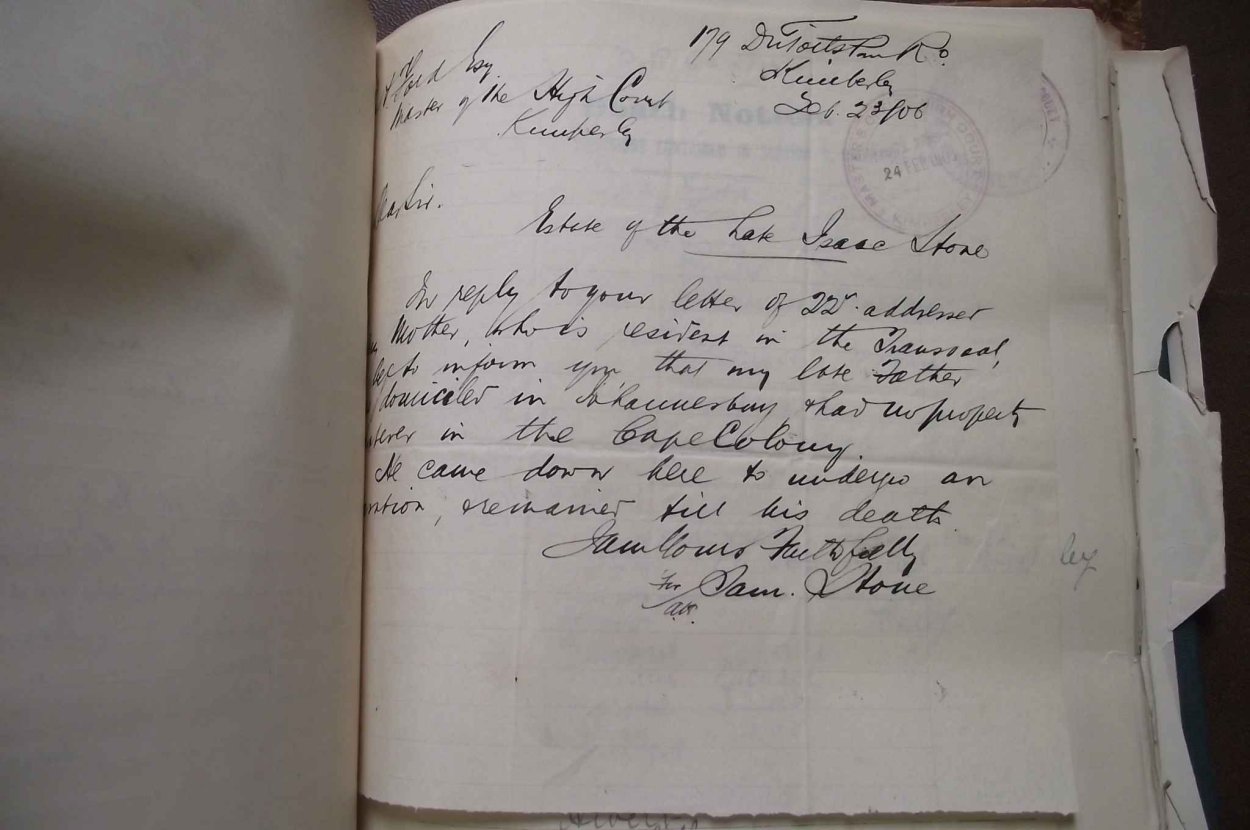 179 DuToitspan Rd
Kimberley
Feb. 23/06
Ford Esq
Master of the High Court
Kimberley
24 FEB
Dear Sir.
Estate of the Late Isaac Stone
In reply to your letter of 22d. addressed
Mother, who is resident in the Transvaal,
to inform you that my late Father
domiciled in Johannesburg, & had no property
in the Cape Colony.
He came down here to undergo an
& remained till his death.
I am Yours Faithfully
For Sam. Stone